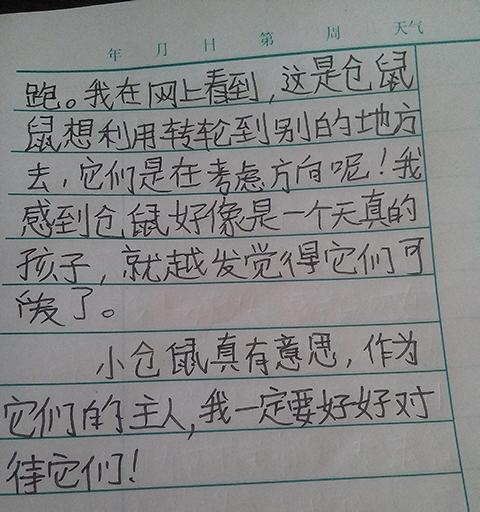 年 月 日 第 周 天气
跑。我在网上看到,这是仓鼠
鼠想利用转轮到别的地方
去,它们是在考虑方向呢!我
感到仓鼠好像是一个天真的
孩子,就越发觉得它们可
爱了。
小仓鼠真有意思,作为
它们的主人,我一定要好好对
待它们!